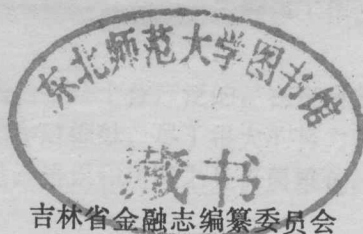 东北师范大学图书馆
藏书
吉林省金融志编纂委员会